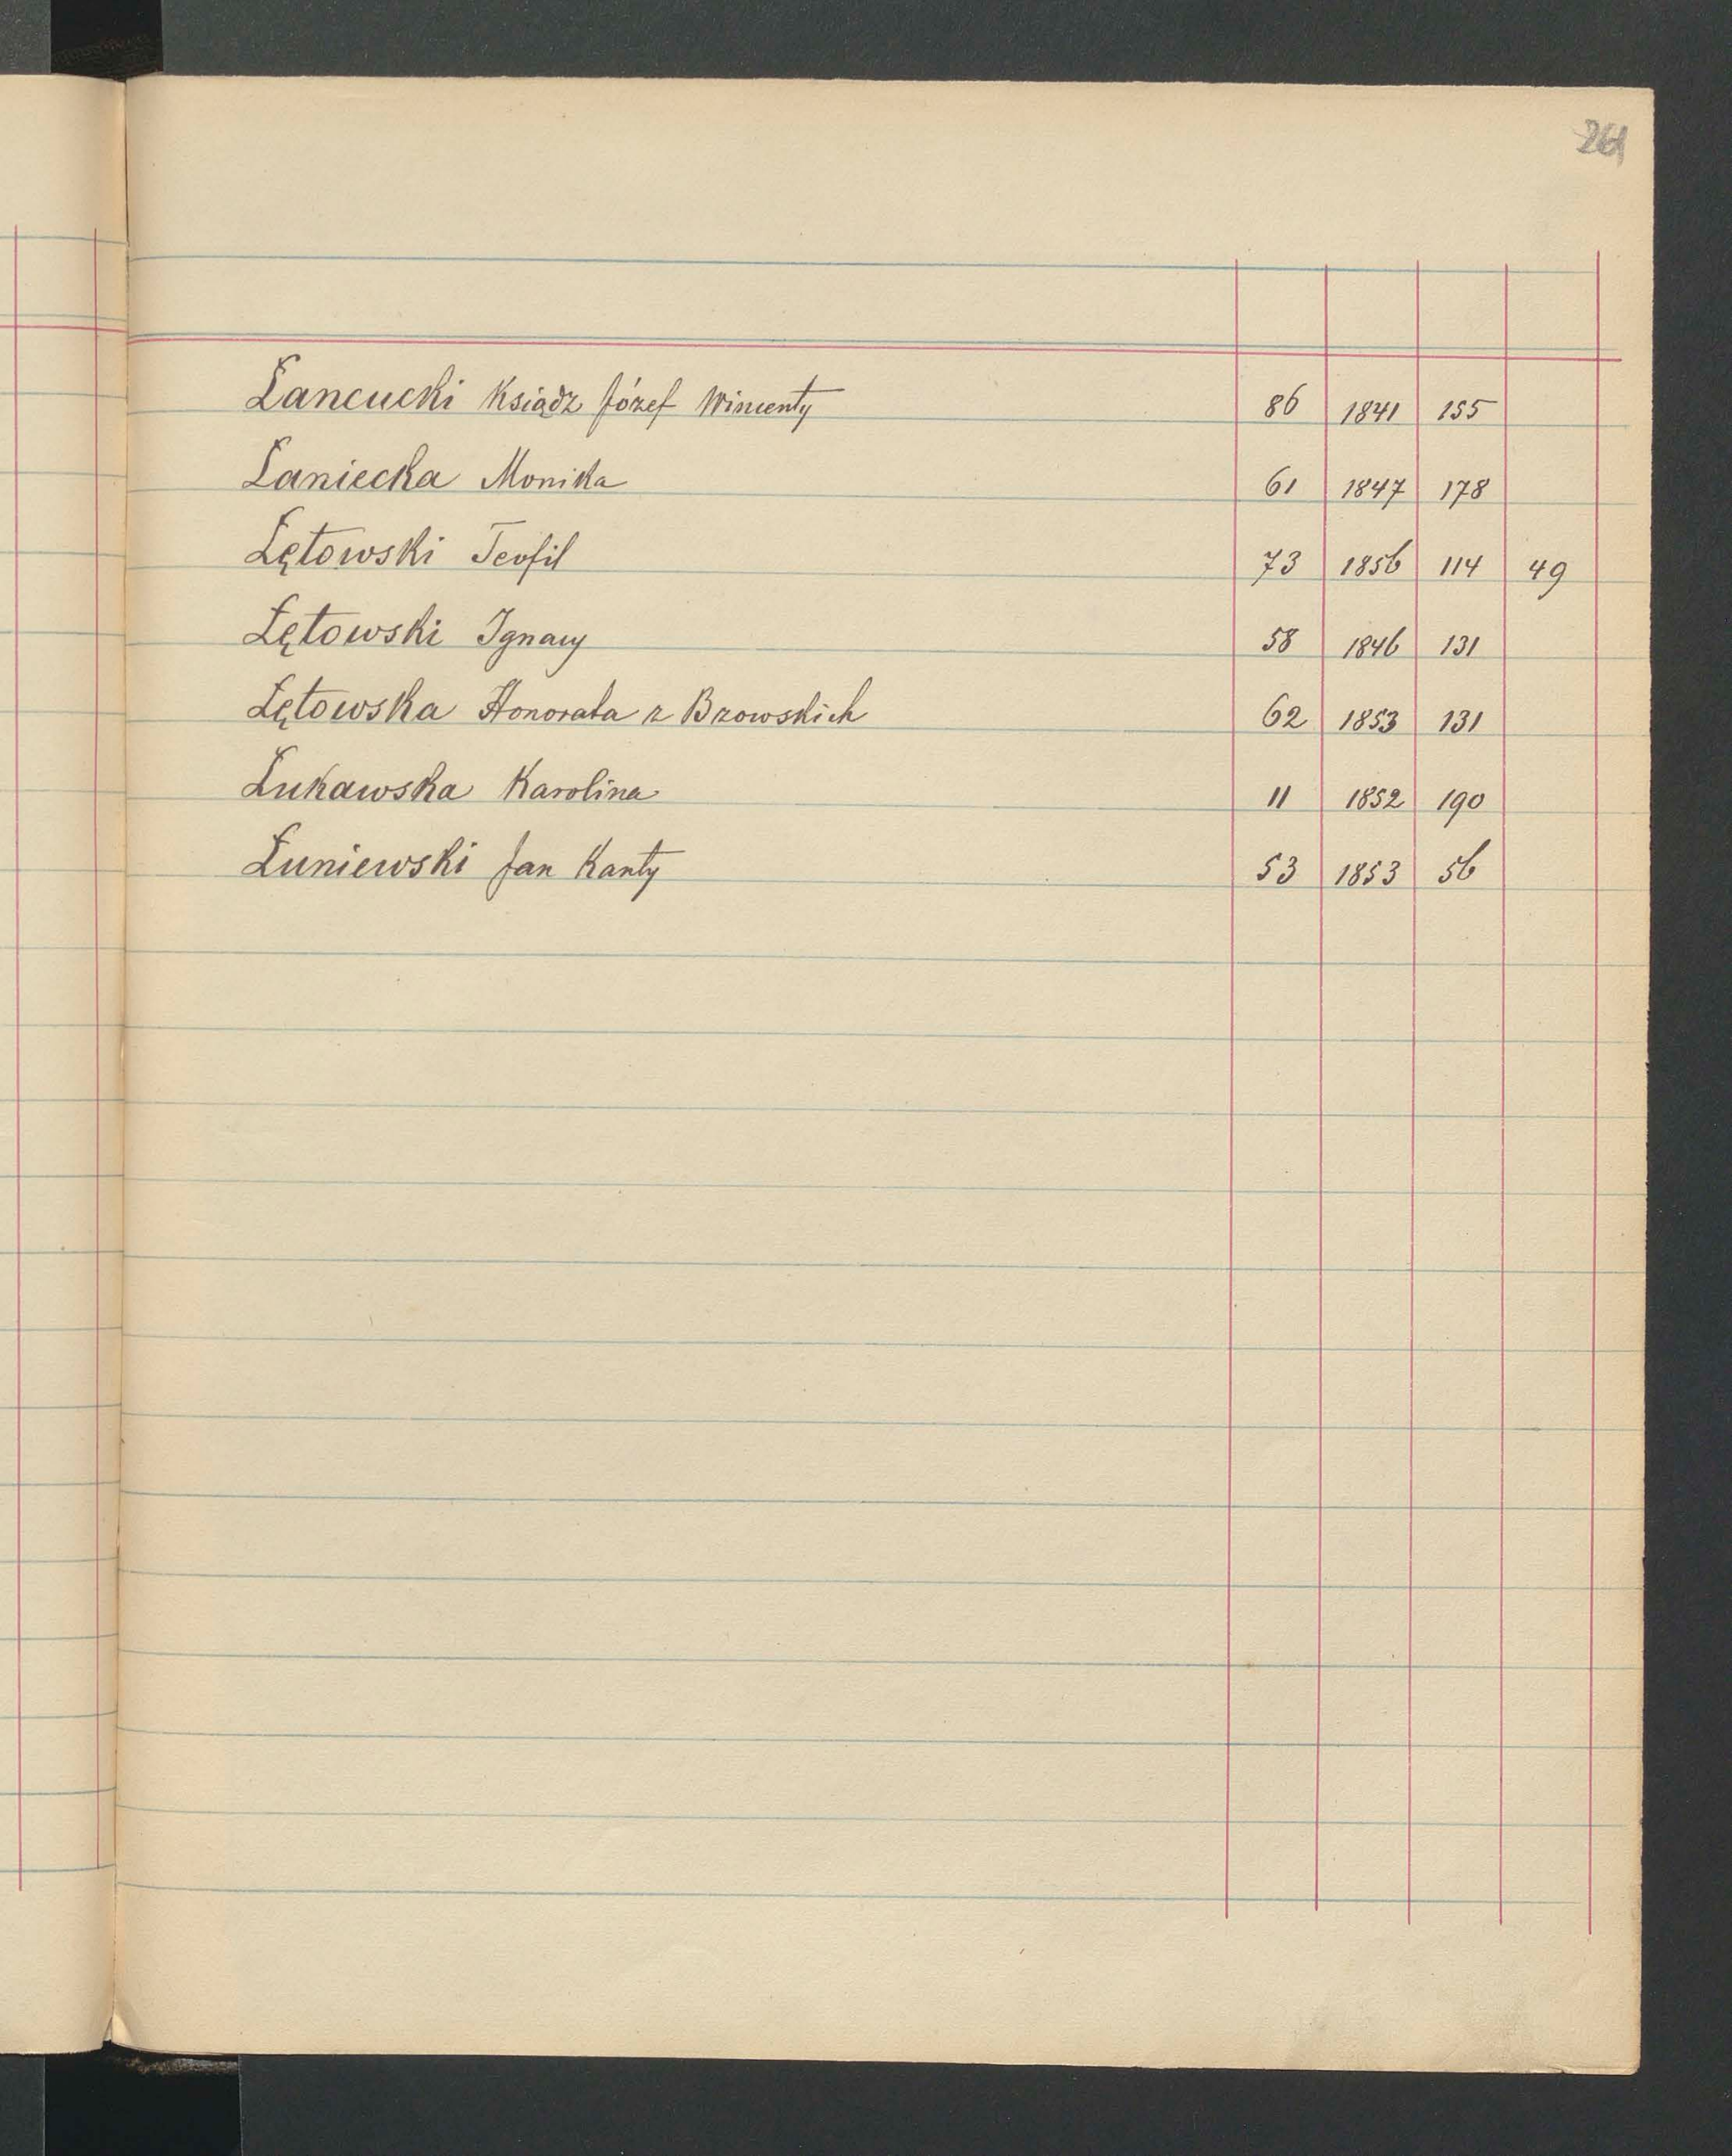 261
Łancucki Ksiądz Józef Wincenty 86 1841 155
Łaniecka Monika 61 1847 178
Łętowski Teofil 73 1856 114 49
Łętowski Ignacy 58 1846 131
Łętowska Honorata z Bzowskich 62 1853 131
Łukawska Karolina 11 1852 190
Łuniewski Jan Kanty 53 1853 56